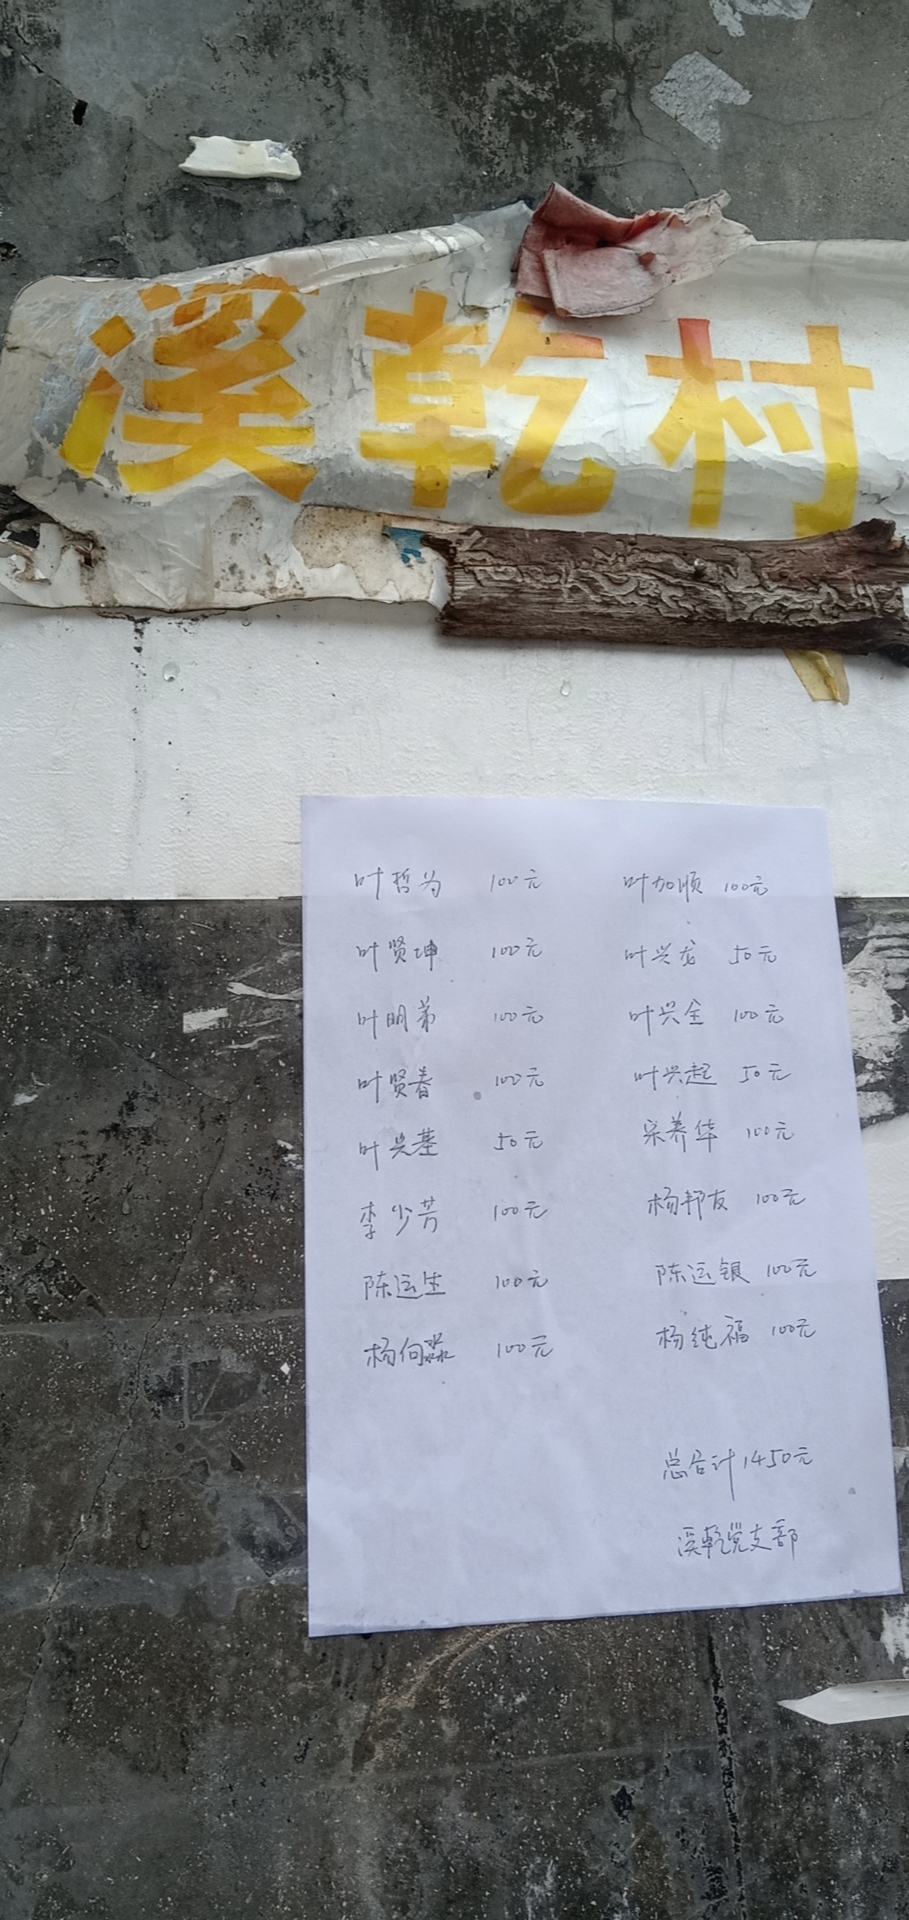 溪乾村
叶哲为 100元 叶加顺 100元
叶贤坤 100元 叶兴龙 50元
叶明弟 100元 叶兴全 100元
叶贤春 100元 叶兴起 50元
叶兴基 50元 宋养华 100元
李少芳 100元 杨邦友 100元
陈运生 100元 陈运银 100元
杨向淼 100元 杨纯福 100元
总合计1450元
溪乾党支部